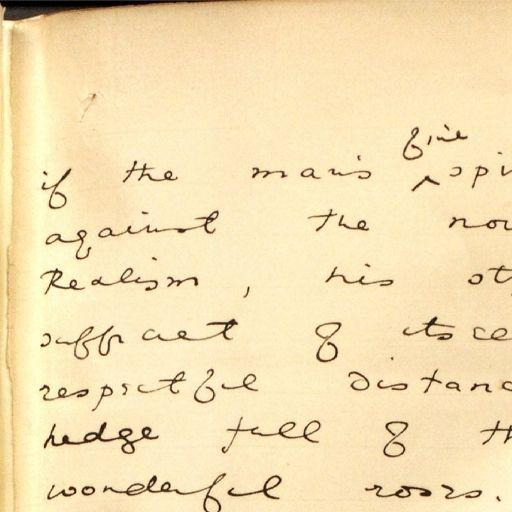 fine
if the man's spi
against the noi
Realism, his st
sufficient of itse
respectful distanc
hedge full of th
wonderful roses.